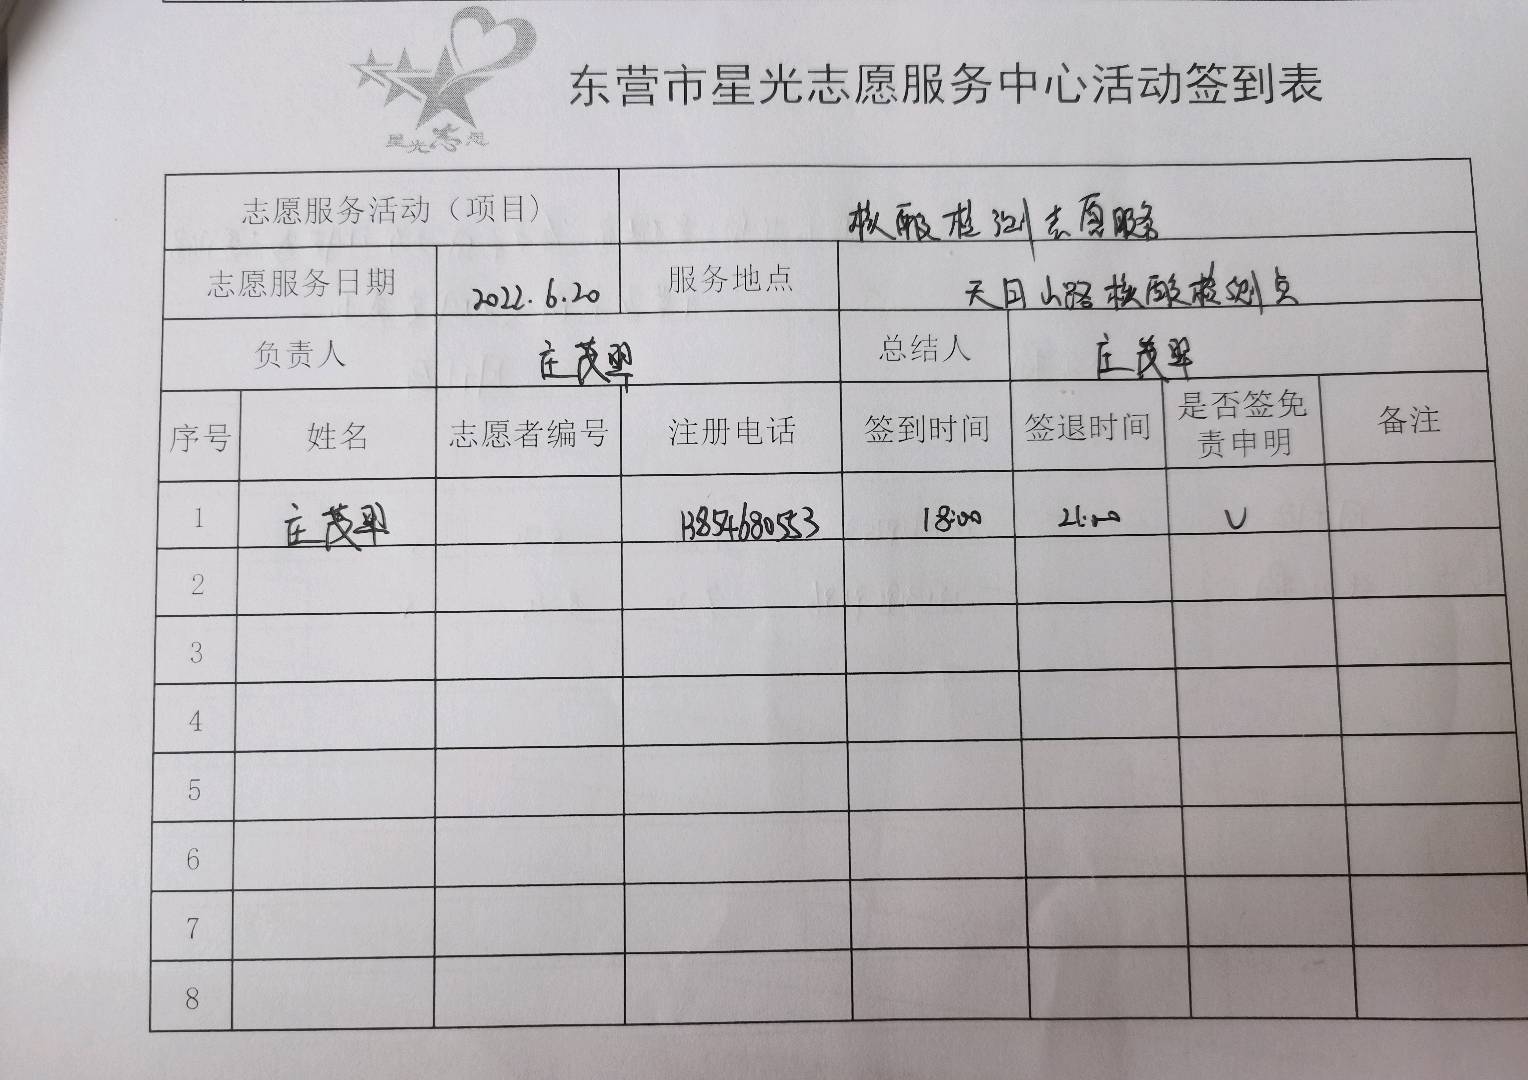 东营市星光志愿服务中心活动签到表
星光志愿
志愿服务活动（项目） 核酸检测志愿服务
志愿服务日期 2022.6.20 服务地点 天目山路核酸检测点
负责人 庄茂翠 总结人 庄茂翠
序号 姓名 志愿者编号 注册电话 签到时间 签退时间 是否签免 备注
责申明
1 庄茂翠 13854680553 18:00 21:00 √
2
3
4
5
6
7
8